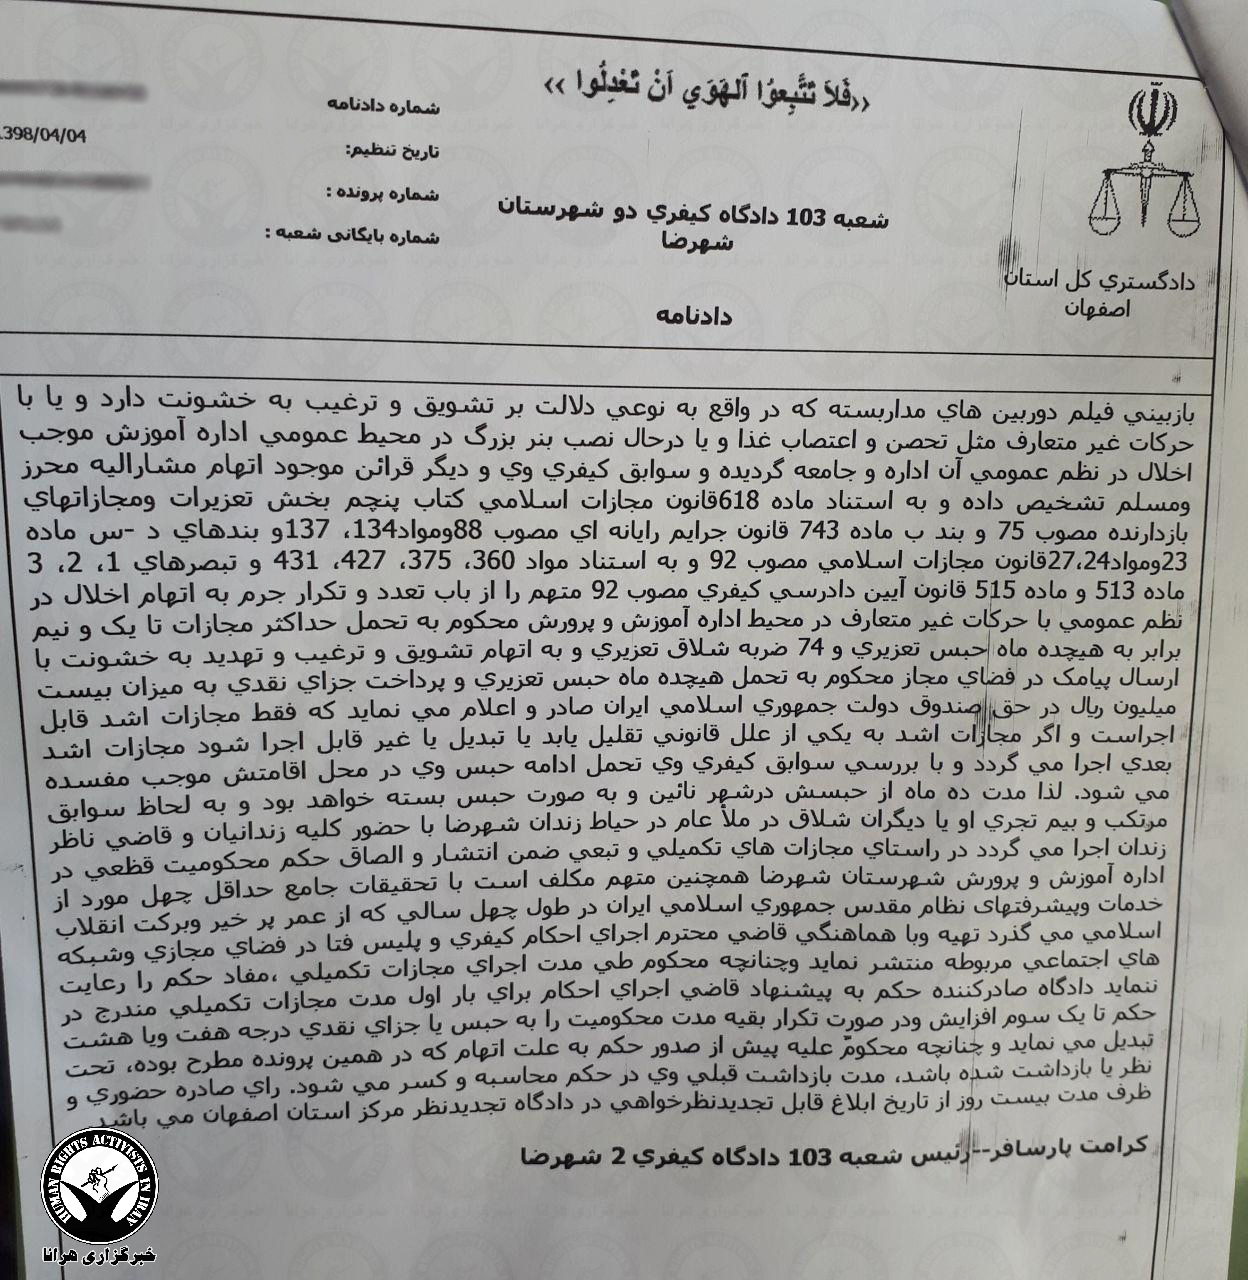 ‹‹فَلاَ تَتَّبِعوُا اَلهَوَي اَنْ تَعْدِلُوا ››
شماره دادنامه
تاریخ تنظیم:
1398/04/04
شماره پرونده :
شماره بایگانی شعبه :
شعبه 103 دادگاه کیفري دو شهرستان
شهرضا
دادگستري کل استان
اصفهان
دادنامه
بازبیني فیلم دوربین هاي مداربسته که در واقع به نوعي دلالت بر تشویق و ترغیب به خشونت دارد و یا با
حرکات غیر متعارف مثل تحصن و اعتصاب غذا و یا درحال نصب بنر بزرگ در محیط عمومي اداره آموزش موجب
اخلال در نظم عمومي آن اداره و جامعه گردیده و سوابق کیفري وي و دیگر قرائن موجود اتهام مشارالیه محرز
ومسلم تشخیص داده و به استناد ماده 618قانون مجازات اسلامي کتاب پنچم بخش تعزیرات ومجازاتهاي
بازدارنده مصوب 75 و بند ب ماده 743 قانون جرایم رایانه اي مصوب 88ومواد134، 137و بندهاي د -س ماده
23ومواد24،27قانون مجازات اسلامي مصوب 92 و به استناد مواد 360، 375، 427، 431 و تبصرهاي 1، 2، 3
ماده 513 و ماده 515 قانون آیین دادرسي کیفري مصوب 92 متهم را از باب تعدد و تکرار جرم به اتهام اخلال در
نظم عمومي با حرکات غیر متعارف در محیط اداره آموزش و پرورش محکوم به تحمل حداکثر مجازات تا یک و نیم
برابر به هیچده ماه حبس تعزیري و 74 ضربه شلاق تعزیري و به اتهام تشویق و ترغیب و تهدید به خشونت با
ارسال پیامک در فضاي مجاز محکوم به تحمل هیچده ماه حبس تعزیري و پرداخت جزاي نقدي به میزان بیست
میلیون ریال در حق صندوق دولت جمهوري اسلامي ایران صادر و اعلام مي نماید که فقط مجازات اشد قابل
اجراست و اگر مجازات اشد به یکي از علل قانوني تقلیل یابد یا تبدیل یا غیر قابل اجرا شود مجازات اشد
بعدي اجرا مي گردد و با بررسي سوابق کیفري وي تحمل ادامه حبس وي در محل اقامتش موجب مفسده
مي شود. لذا مدت ده ماه از حبسش درشهر نائین و به صورت حبس بسته خواهد بود و به لحاظ سوابق
مرتکب و بیم تجري او یا دیگران شلاق در ملأ عام در حیاط زندان شهرضا با حضور کلیه زندانیان و قاضي ناظر
زندان اجرا مي گردد در راستاي مجازات هاي تکمیلي و تبعي ضمن انتشار و الصاق حکم محکومیت قطعي در
اداره آموزش و پرورش شهرستان شهرضا همچنین متهم مکلف است با تحقیقات جامع حداقل چهل مورد از
خدمات وپیشرفتهای نظام مقدس جمهوري اسلامي ایران در طول چهل سالي که از عمر پر خیر وبرکت انقلاب
اسلامي مي گذرد تهیه وبا هماهنگي قاضي محترم اجراي احکام کیفري و پلیس فتا در فضاي مجازي وشبکه
هاي اجتماعي مربوطه منتشر نماید وچنانچه محکوم طي مدت اجراي مجازات تکمیلي ،مفاد حکم را رعایت
ننماید دادگاه صادرکننده حکم به پیشنهاد قاضي اجراي احکام براي بار اول مدت مجازات تکمیلي مندرج در
حکم تا یک سوم افزایش ودر صورت تکرار بقیه مدت محکومیت را به حبس یا جزاي نقدي درجه هفت ویا هشت
تبدیل مي نماید و چنانچه محکومٌ علیه پیش از صدور حکم به علت اتهام که در همین پرونده مطرح بوده، تحت
نظر یا بازداشت شده باشد، مدت بازداشت قبلي وي در حکم محاسبه و کسر مي شود. راي صادره حضوري و
ظرف مدت بیست روز از تاریخ ابلاغ قابل تجدیدنظرخواهي در دادگاه تجدیدنظر مرکز استان اصفهان مي باشد
کرامت پارسافر--رئیس شعبه 103 دادگاه کیفري 2 شهرضا
HUMAN RIGHTS ACTIVISTS IN IRAN
خبرگزاری هرانا